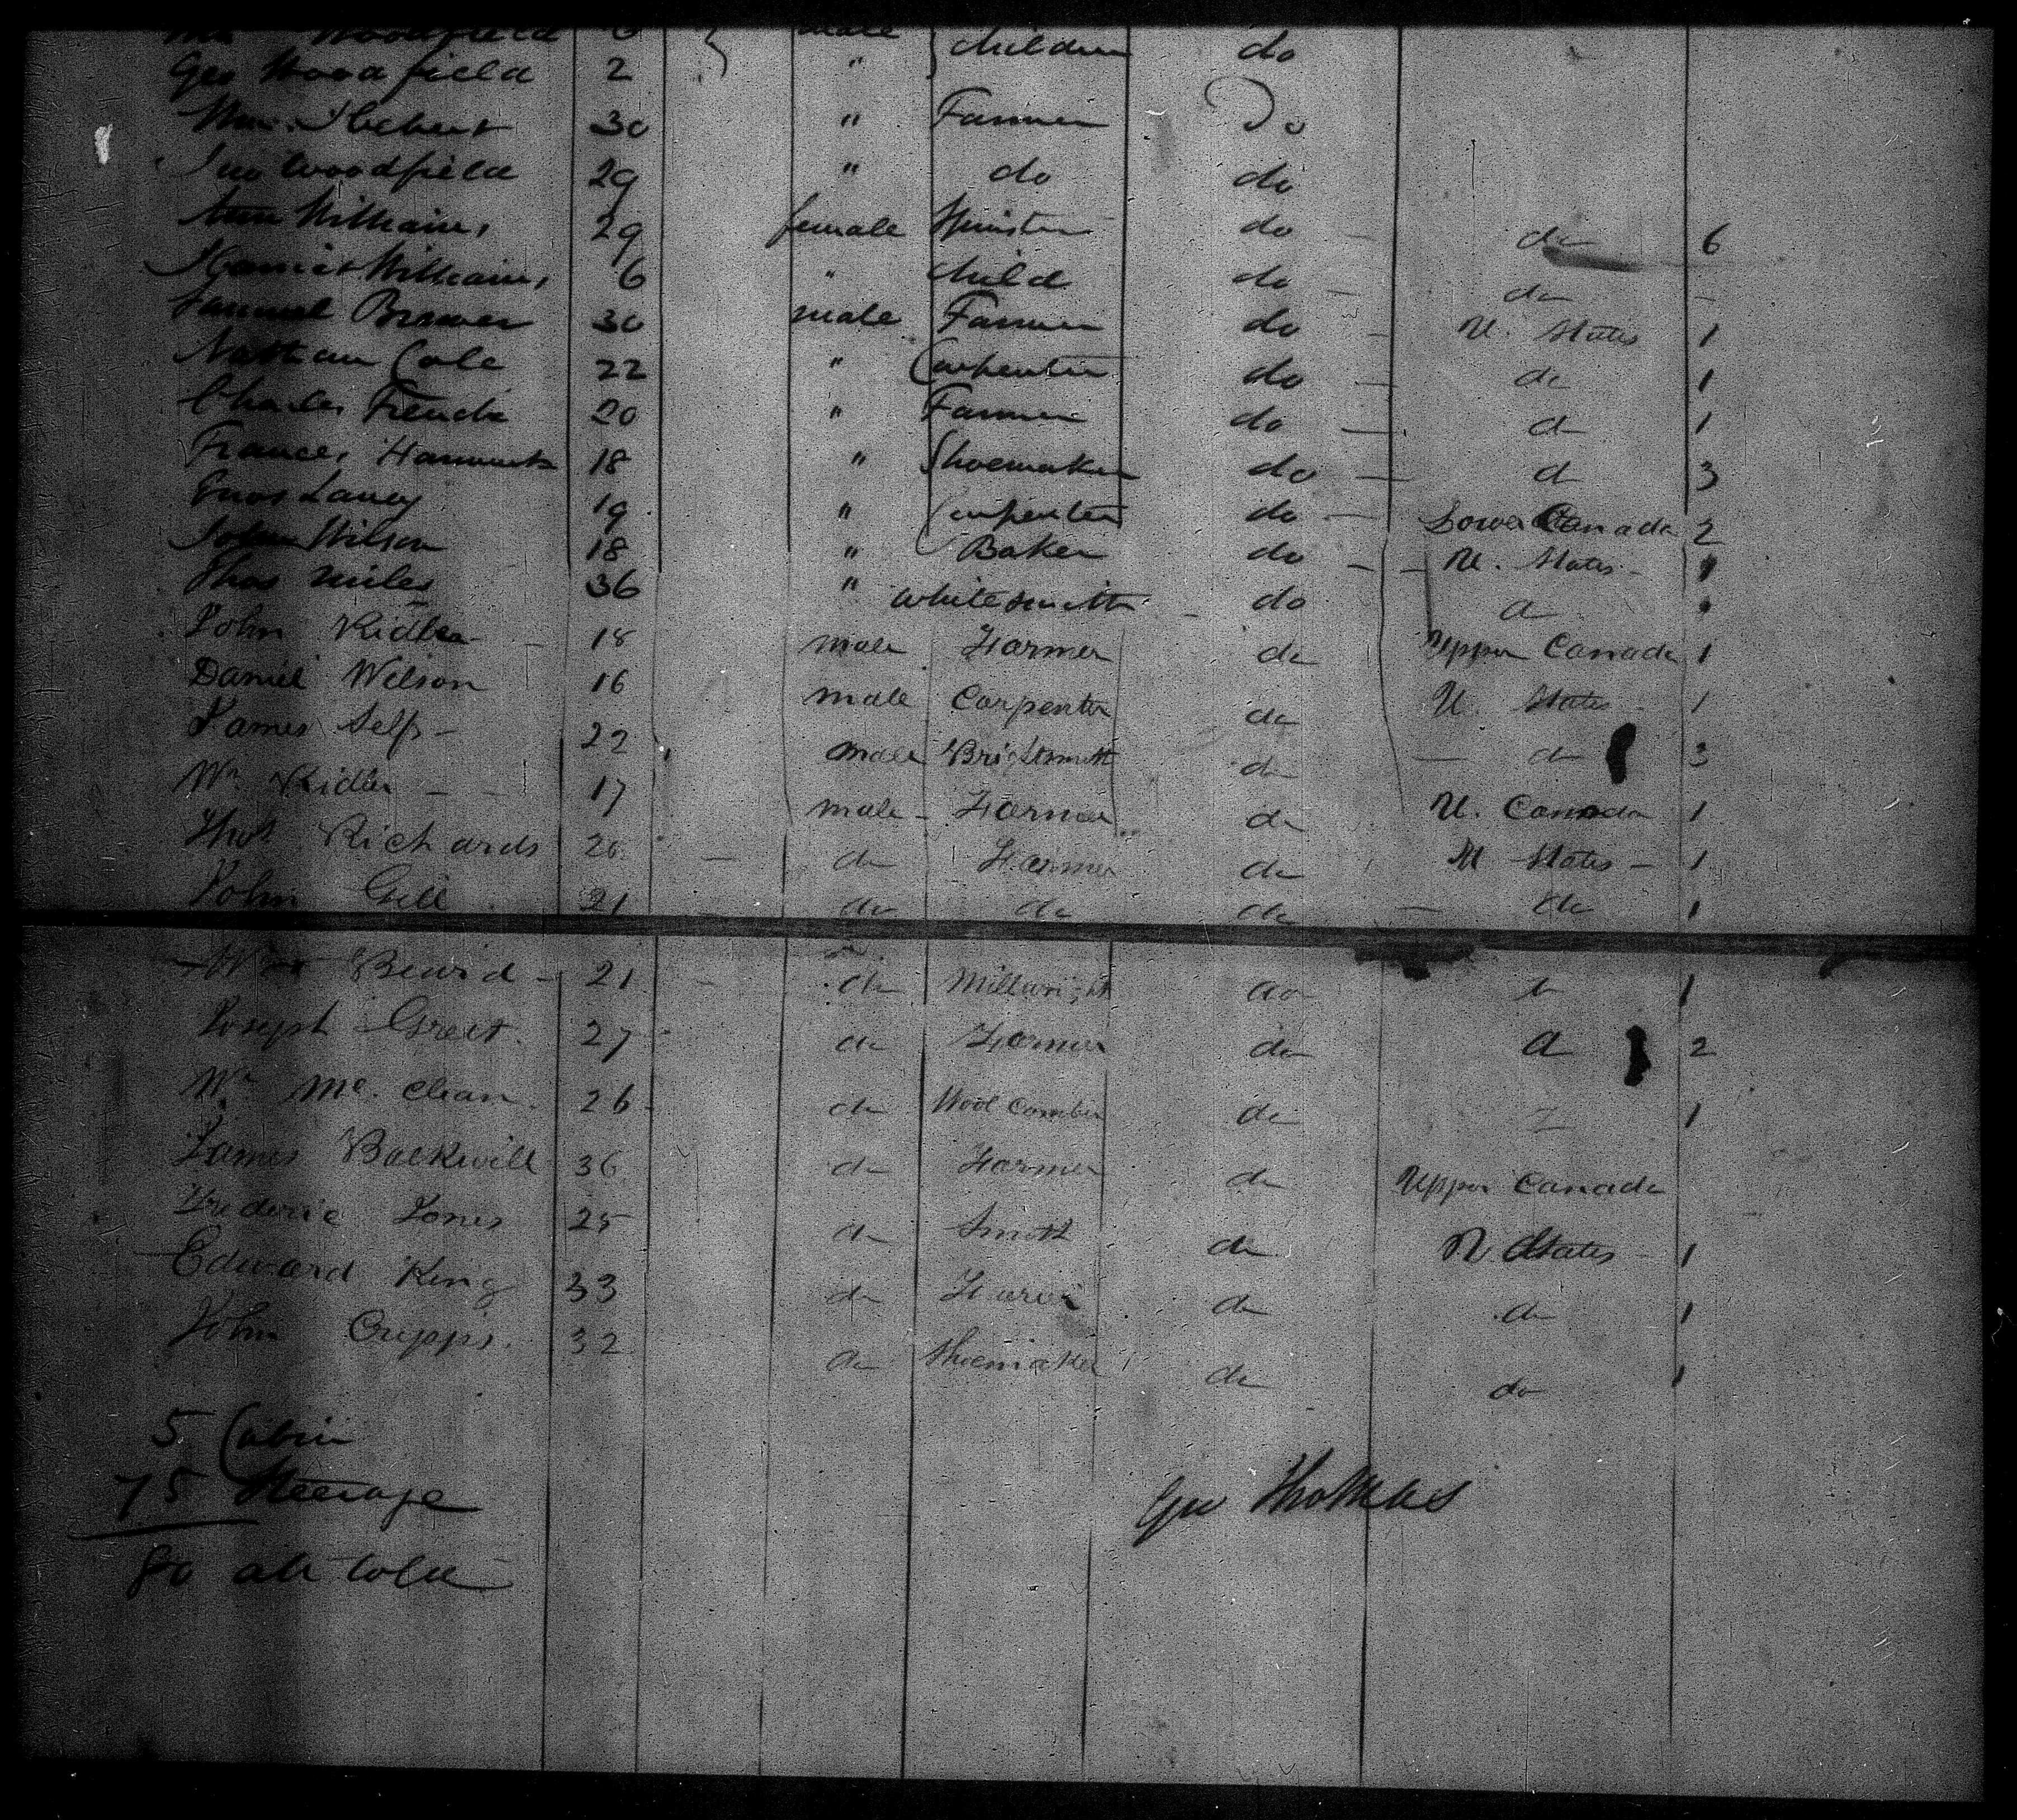 Woodfield 6 male children do
Geo Woodfield 2 "
Wm. Hebert 30 " Farmer Do
Jno Woodfield 29 " do do
Ann Williams 29 female Spinster do — do 6
Harriet Williams 6 " child do — do -
Samuel Brewer 30 male Farmer do - U. States 1
Nathan Cole 22 " Carpenter do — do 1
Charles French 20 " Farmer do — d 1
Frances 18 " Shoemaker do — d 3
Enos Laney 19 " Carpenter do — Lower Canada 2
John Wilson 18 " Baker do - - U. States - 1
Thos Miles 36 " whitesmith - do
John Ridler - 18 male Farmer do Upper Canada 1
Daniel Wilson 16 male Carpenter do U. States - 1
James Self - 22 male Brightsmith do — do 3
Wm Ridler - - 17 male - Farmer do U. Canada 1
Thos Richards 20 — do Farmer do U States - 1
John Gill 21 do do do — do 1
Beard - 21 - do Millwright do 1
Joseph Greet 27 do Farmer do 2
Wm Mc. Clean 26 do Wool Comber do 1
James Balkwill 36 do Farmer do Upper Canada
Frederic Jones 25 do Smith do U. States - 1
Edward King 33 do do do 1
John Cripps. 32 do Shoemaker do do 1
5 Cabin
75 Steerage
80 all told
Geo Thomas